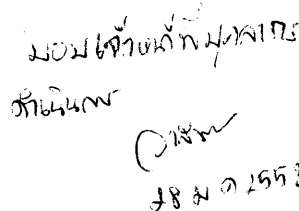 มอบเจ้าหน้าที่บุคลากร
ดำเนินการ
28 ม ค 255